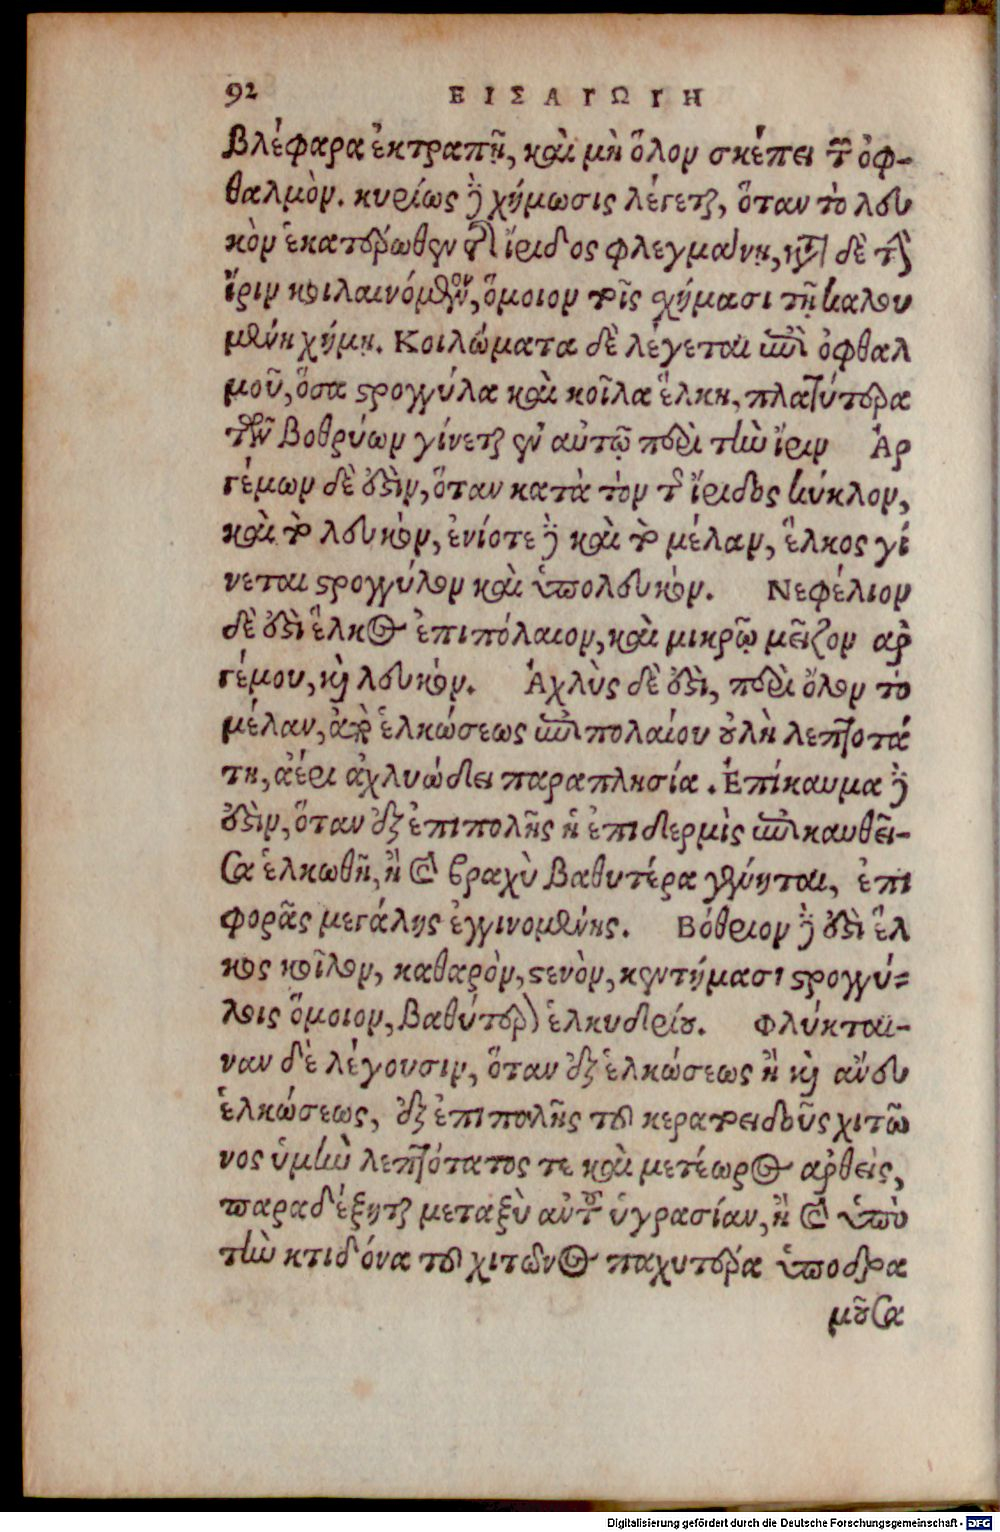 92 ΕΙΣΑΓΩΓΗ
βλέφαρα ἐκτραπῇ, καὶ μὴ ὅλον σκέπει τὸν ὀφ-
θαλμὸν. κυρίως δὲ χήμωσις λέγεται, ὅταν τὸ λευ
κὸν ἑκατέρωθεν τῆς ἴριδος φλεγμαίνῃ, κατὰ δὲ τὴν
ἴριν κοιλαινόμενον, ὅμοιον τοῖς χήμασι τῇ καλου
μένῃ χήμῃ. Κοιλώματα δὲ λέγεται ἐπὶ ὀφθαλ
μοῦ, ὅσα στρογγύλα καὶ κοῖλα ἕλκη, πλατύτερα
τῶν βοθρύων γίνεται ἐν αὐτῷ περὶ τὴν ἴριν Ἀρ
γέμων δὲ ἐστὶν, ὅταν κατὰ τὸν τῆς ἴριδος κύκλον,
καὶ τὸ λευκὸν, ἐνίοτε δὲ καὶ τὸ μέλαν, ἕλκος γί
νεται στρογγύλον καὶ ὑπολευκόν. Νεφέλιον
δὲ ἐστὶ ἕλκος ἐπιπόλαιον, καὶ μικρῷ μεῖζον αρ
γέμου, καὶ λευκόν. Ἀχλὺς δὲ ἐστὶ, περὶ ὅλον τὸ
μέλαν, ἀπὸ ἑλκώσεως ἐπιπολαίου οὐλὴ λεπτοτά
τη, ἀέρι ἀχλυώδει παραπλησία. Ἐπίκαυμα δὲ
ἐστὶν, ὅταν ἐξ ἐπιπολῆς ἡ ἐπιδερμὶς ἐπικαυθεῖ-
σα ἑλκωθῇ, ἢ καὶ βραχὺ βαθυτέρα γένηται, ἐπι
φορᾶς μεγάλης ἐγγινομένης. Βόθριον δὲ ἐστὶ ἕλ
κος κοῖλον, καθαρὸν, στενὸν, κεντήμασι στρογγύ-
λοις ὅμοιον, βαθύτερον ἑλκυδρίου. Φλύκται-
ναν δὲ λέγουσιν, ὅταν ἐξ ἑλκώσεως ἢ καὶ ἄνευ
ἑλκώσεως, ἐξ ἐπιπολῆς τοῦ κερατοειδοῦς χιτῶ
νος ὑμὴν λεπτότατος τε καὶ μετέωρος αρθεὶς,
παραδέξηται μεταξὺ αὐτοῦ ὑγρασίαν, ἢ καὶ ὑπὸ
τὴν κτιδόνα τοῦ χιτῶνος παχυτέρα ὑποδρα
μοῦσα
Digitalisierung gefördert durch die Deutsche Forschungsgemeinschaft - DFG